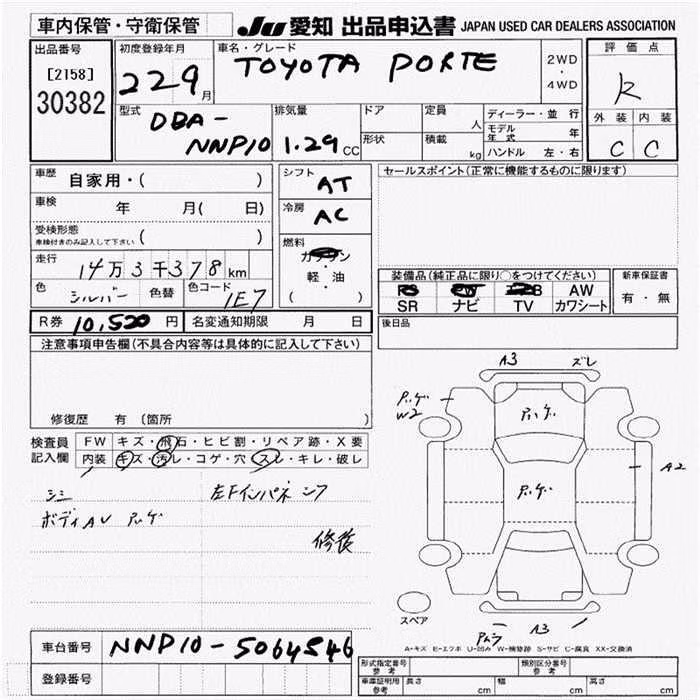 車内保管・守衛保管
JU 愛知 出品申込書 JAPAN USED CAR DEALERS ASSOCIATION
出品番号
[2158]
30382
初度登録年月
22 9 月
車名・グレード
TOYOTA PORTE
2WD
・
4WD
評価点
R
外装 内装
C C
型式
DBA-
NNP10
排気量
1.29 CC
ドア
形状
定員
人
積載
kg
ディーラー・並行
モデル年式 年
ハンドル 左・右
車歴
自家用・( )
車検 年 月( 日)
受検形態
車検付きのみ記入して下さい ( )
走行
14万3千378 km
色 シルバー 色替 色コード 1E7
R券 10,520 円 名変通知期限 月 日
シフト
AT
冷房
AC
燃料
ガソリン
・
軽・油
( )
セールスポイント(正常に機能するものに限ります)
装備品(純正品に限り○をつけてください)
AW
SR ナビ TV カワシート
新車保証書
有・無
後日品
注意事項申告欄(不具合内容等は具体的に記入して下さい)
修復歴 有 〔箇所
検査員
記入欄
FW キズ・飛石・ヒビ割・リペア跡・X要
内装 キズ・汚レ・コゲ・穴・スレ・キレ・破レ
シミ
左Fインパネ シワ
ボディAU ハゲ
修復
A3 ズレ
ハゲ
W2
ハゲ
ハゲ
A2
スペア
A3
A-キズ E-エクボ U-凹み W-補修跡 S-サビ C-腐食 XX-交換済
車台番号 NNP10-5064546
登録番号
形式指定番号
参考
類別区分番号
参考
車庫証明用
参考
長さ cm 幅 cm 高さ cm